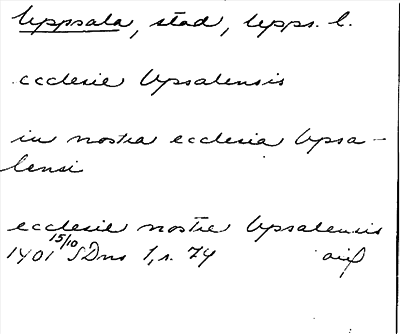 Uppsala, stad, Upps. l.
ecclesie Upsalensis
in nostra ecclesia Upsa-
lensi
ecclesie nostre Upsalensis
1401 15/10 SDns 1, s. 74 avs